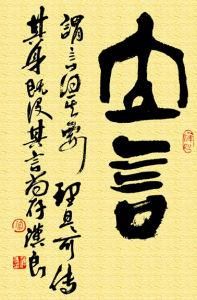 立言
謂言得其要理足可传
其身既没其言尚存漢良